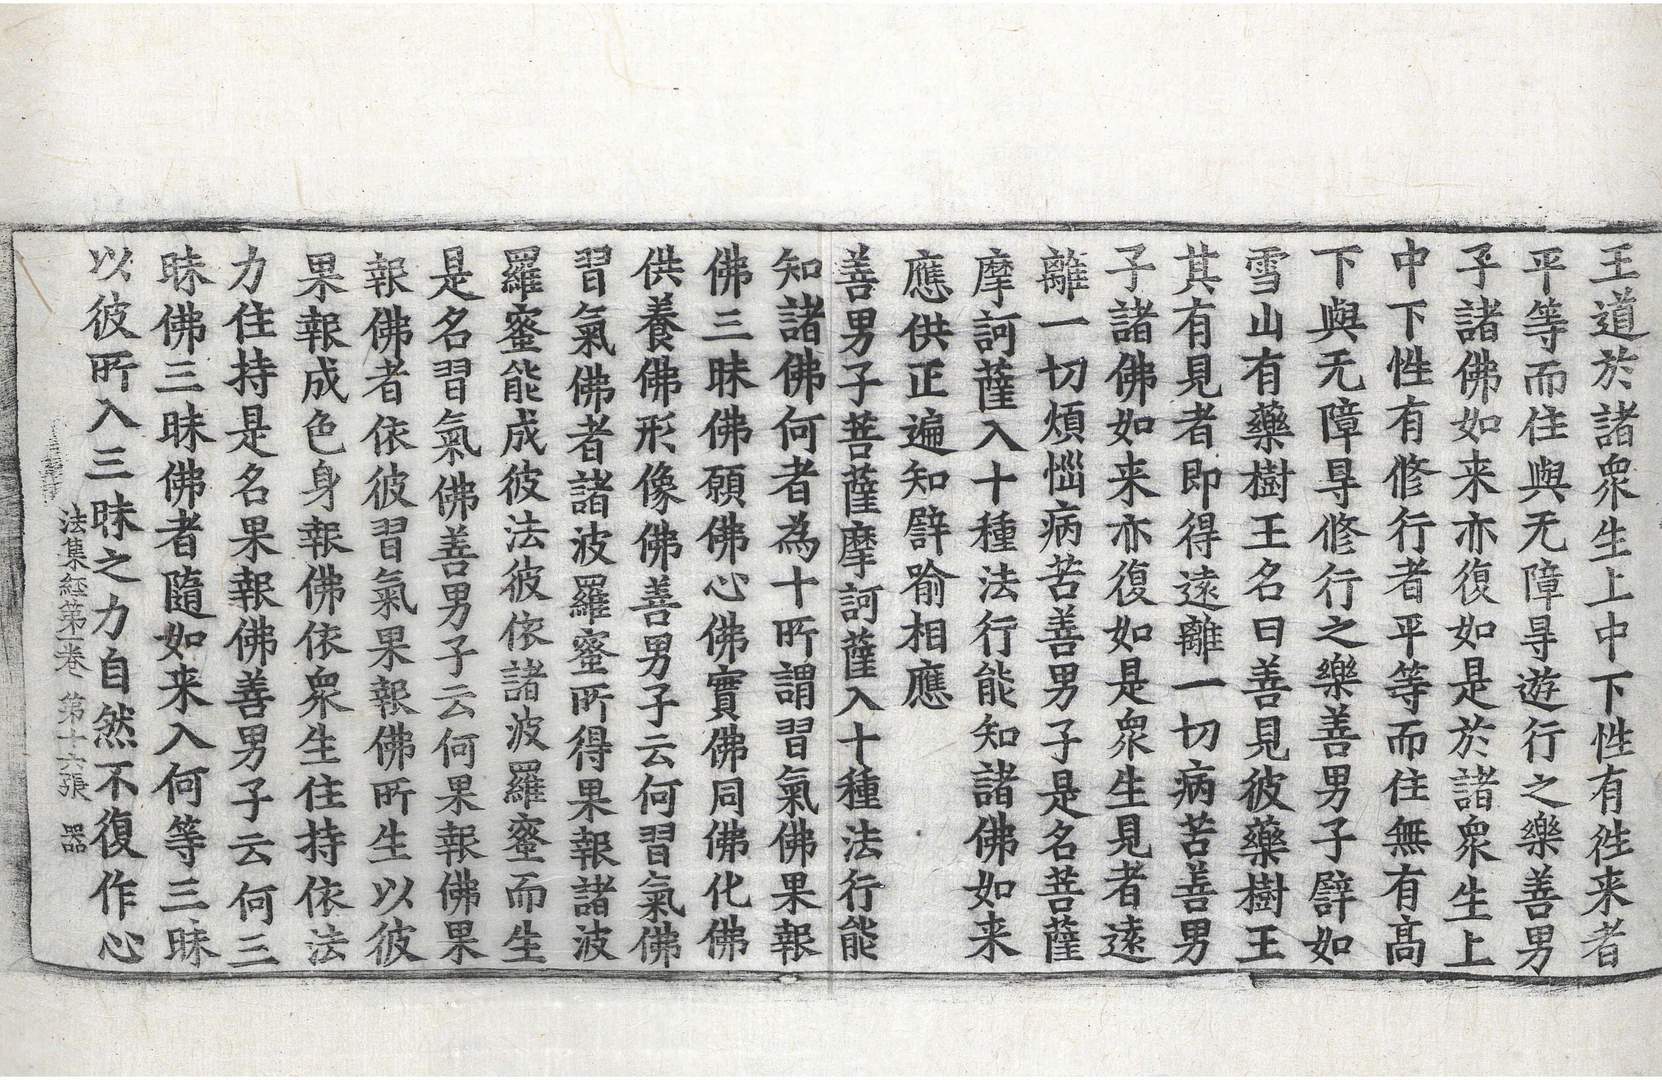 王道於諸衆生上中下性有徃来者
平等而住與无障㝵遊行之樂善男
子諸佛如来亦復如是於諸衆生上
中下性有修行者平等而住無有高
下與无障㝵修行之樂善男子譬如
雪山有藥樹王名曰善見彼藥樹王
其有見者即得遠離一切病苦善男
子諸佛如来亦復如是衆生見者遠
離一切煩惱病苦善男子是名菩薩
摩訶薩入十種法行能知諸佛如来
應供正遍知譬喻相應
善男子菩薩摩訶薩入十種法行能
知諸佛何者為十所謂習氣佛果報
佛三昧佛願佛心佛實佛同佛化佛
供養佛形像佛善男子云何習氣佛
習氣佛者諸波羅蜜所得果報諸波
羅蜜能成彼法彼依諸波羅蜜而生
是名習氣佛善男子云何果報佛果
報佛者依彼習氣果報佛所生以彼
果報成色身報佛依衆生住持依法
力住持是名果報佛善男子云何三
昧佛三昧佛者隨如来入何等三昧
以彼所入三昧之力自然不復作心
法集經第一卷 第十六張 器